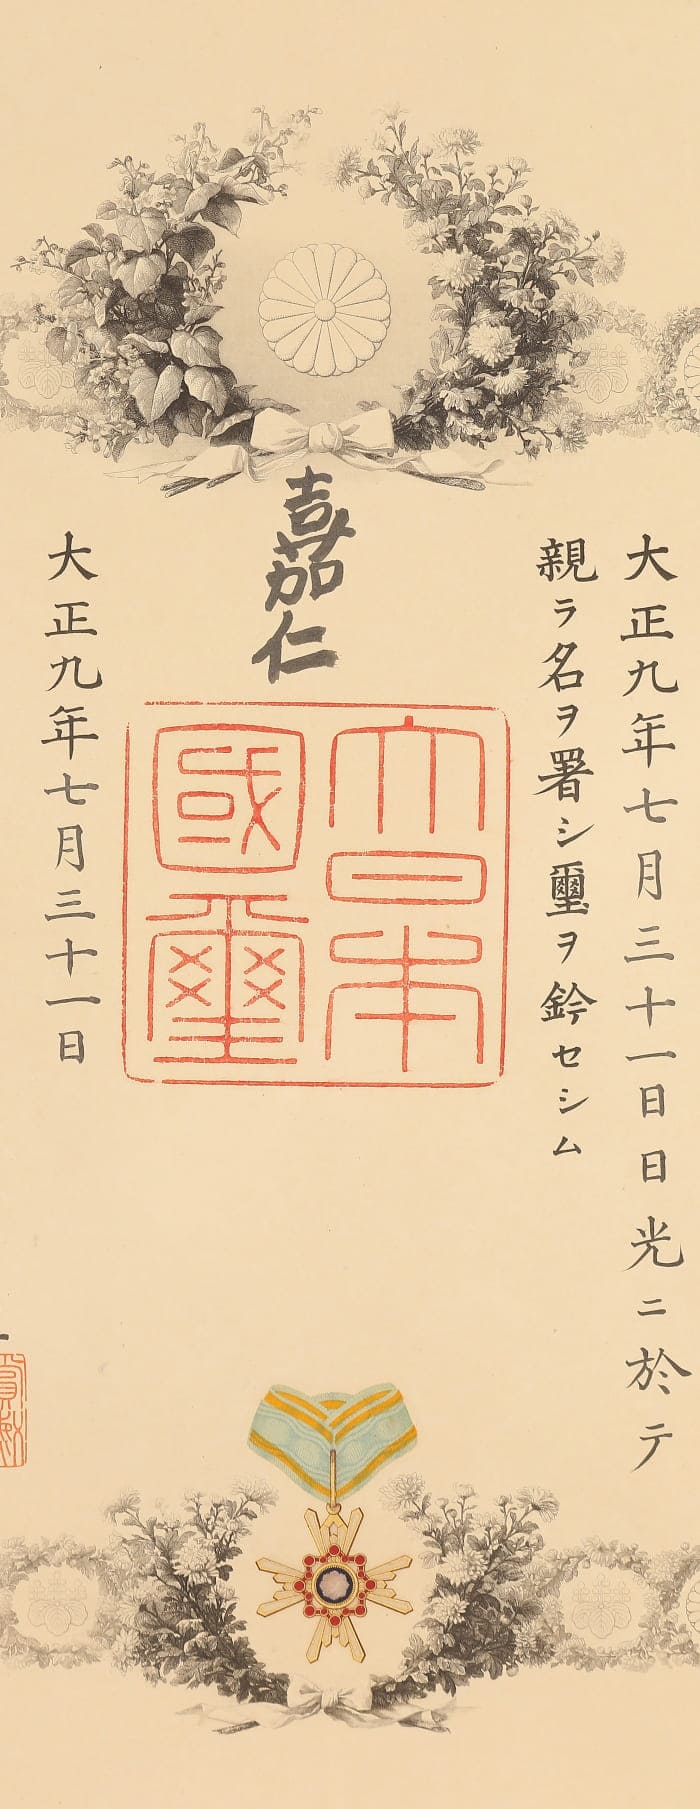 大正九年七月三十一日日光ニ於テ
親ラ名ヲ署シ璽ヲ鈐セシム
嘉仁
大日本
國璽
大正九年七月三十一日